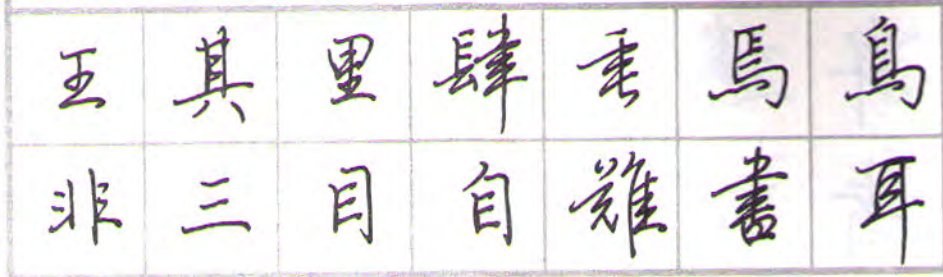 王其里肆垂馬鳥
非三目自難書耳